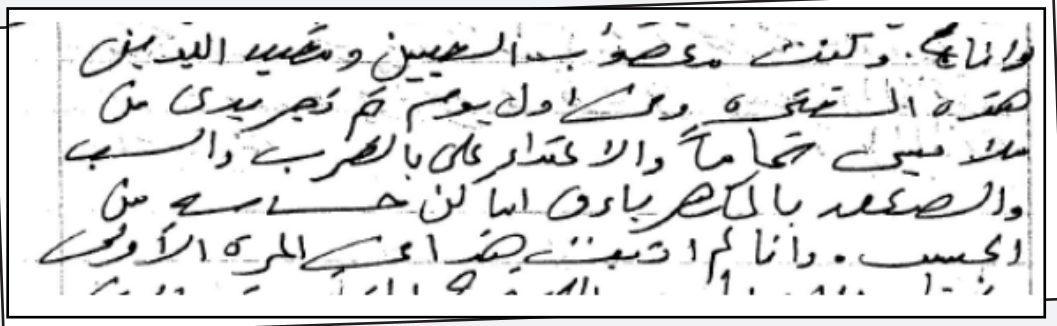 وكنت معصوب العينين ومقيد اليدين
هذه الفتره وفى اول يوم تم تجريدى من
ملابسى تماماً والاعتداء على بالضرب والسب
والصعق بالكهرباء فى اماكن حساسه من
الجسد. وانا لم اثبت هذا فى المره الأولى